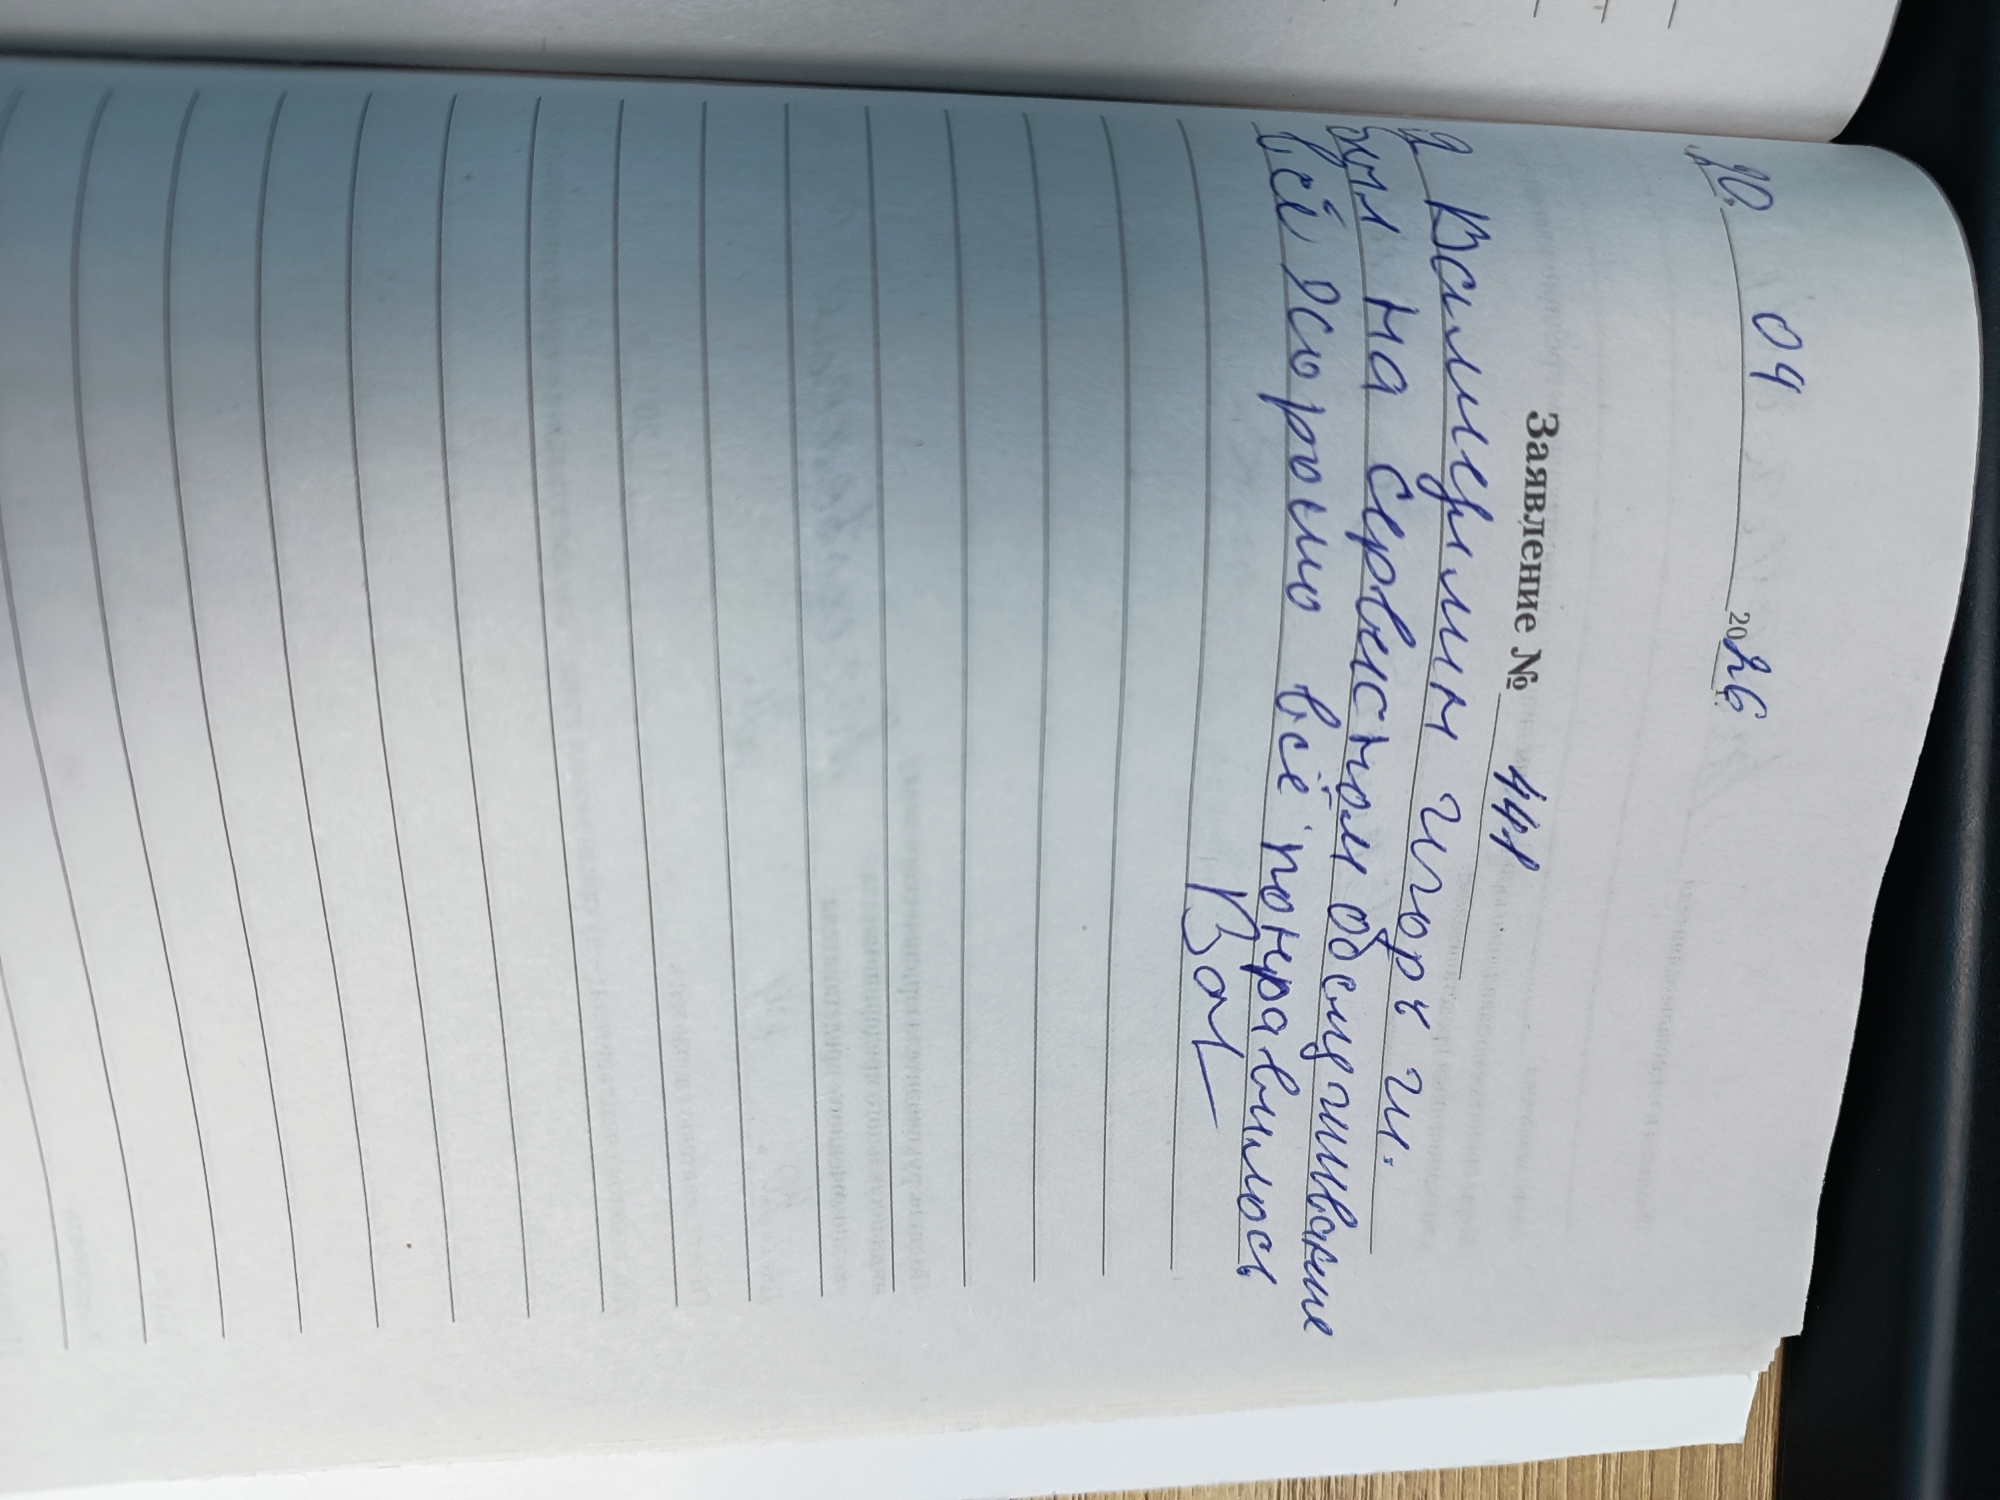 10. 04 2026
Заявление № 441
Я Валмерлин Игорь И.
был на сервисном обслуживание
всё хорошо всё понравилось